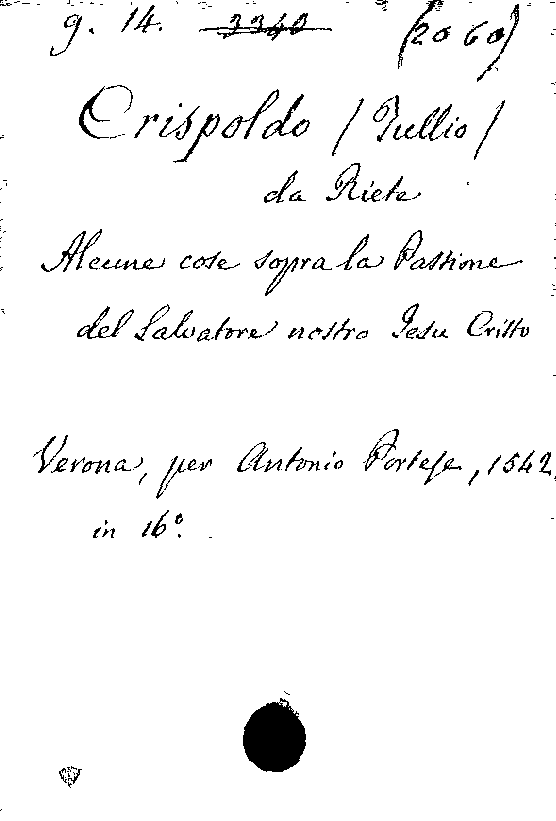 g. 14. 3340 (2060)
Crispoldo (Tullio)
da Riete
Alcune cose sopra la Passione
del Salvatore nostro Jesu Cristo
Verona, per Antonio Portese, 1542.
in 16º.